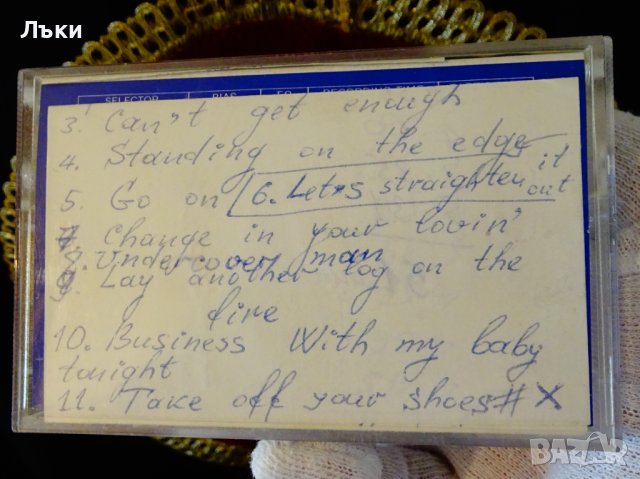 Лъки
SELECTOR BIAS EQ RECORDING TIME
3. Can't get enough
4. Standing on the edge
5. Go on 6. Let's straighten it out
7. Change in your lovin'
8. Undercover man
9. Lay another log on the
fire
10. Business With my baby
tonight
11. Take off your shoes # X
BAZAR.BG